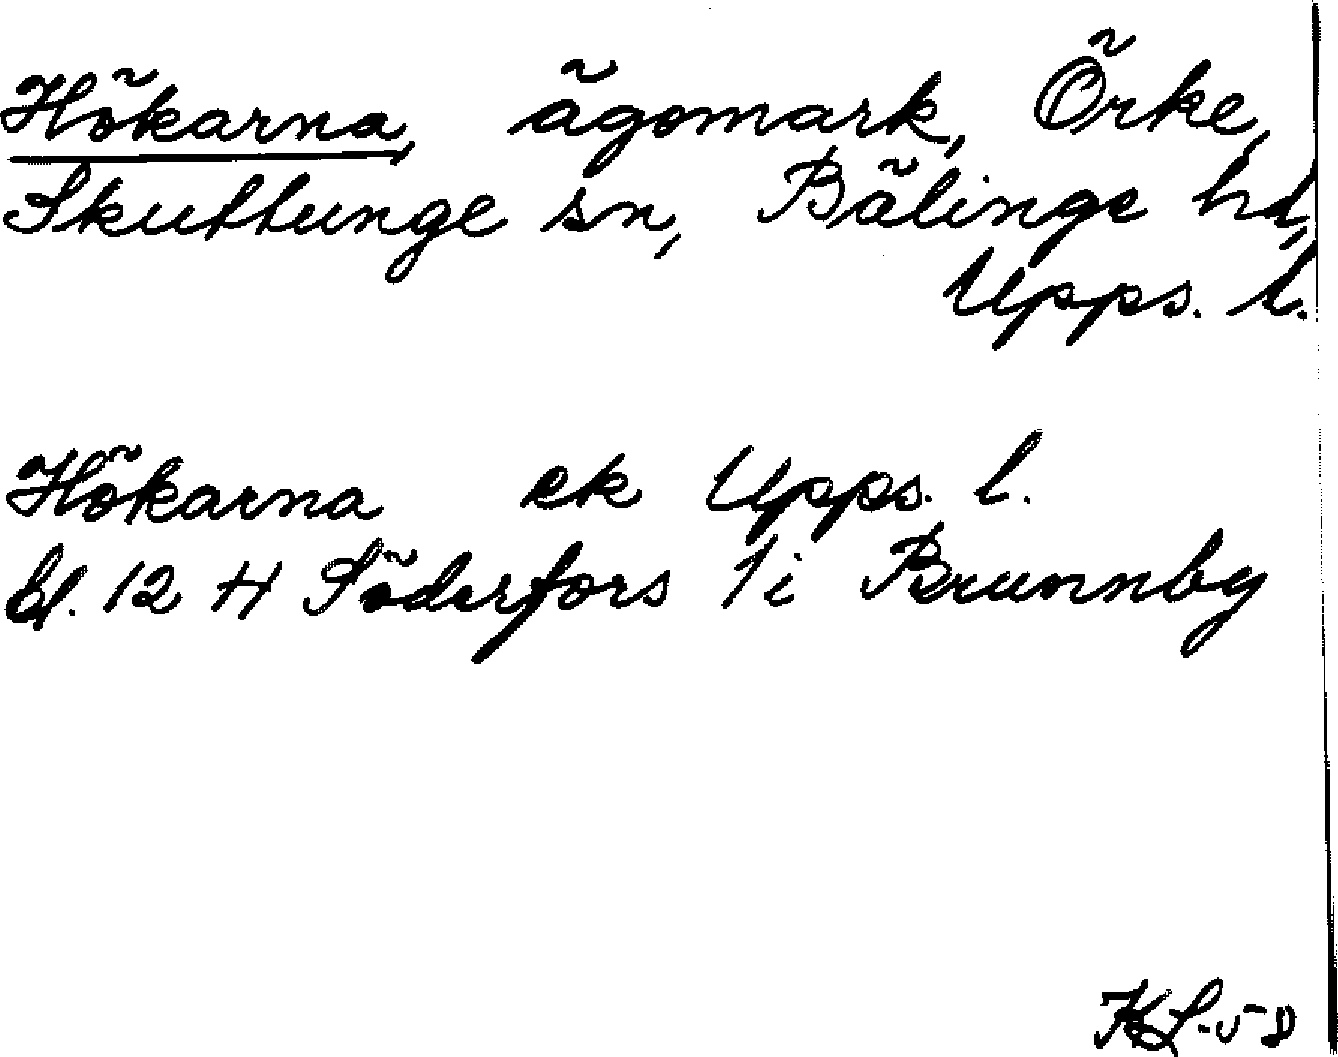 Hökarna, ägomark, Örke,
Skuttunge sn, Bälinge hd,
Upps. l.
Hökarna ek Upps. l.
bl. 12 H Söderfors 1i Brunnby
KL-58